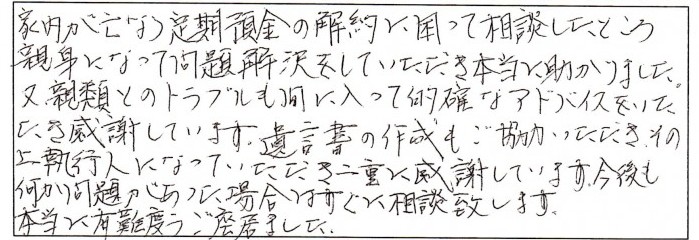 家内が亡なり定期預金の解約に困って相談したところ
親身になって問題解決をしていただき本当に助かりました。
又、親類とのトラブルも間に入って的確なアドバイスをいた
だき感謝しています。遺言書の作成もご協力いただき、その
上執行人になっていただき二重に感謝しています。今後も
何か問題があった場合はすぐに相談致します。
本当に有難度うご座居ました。